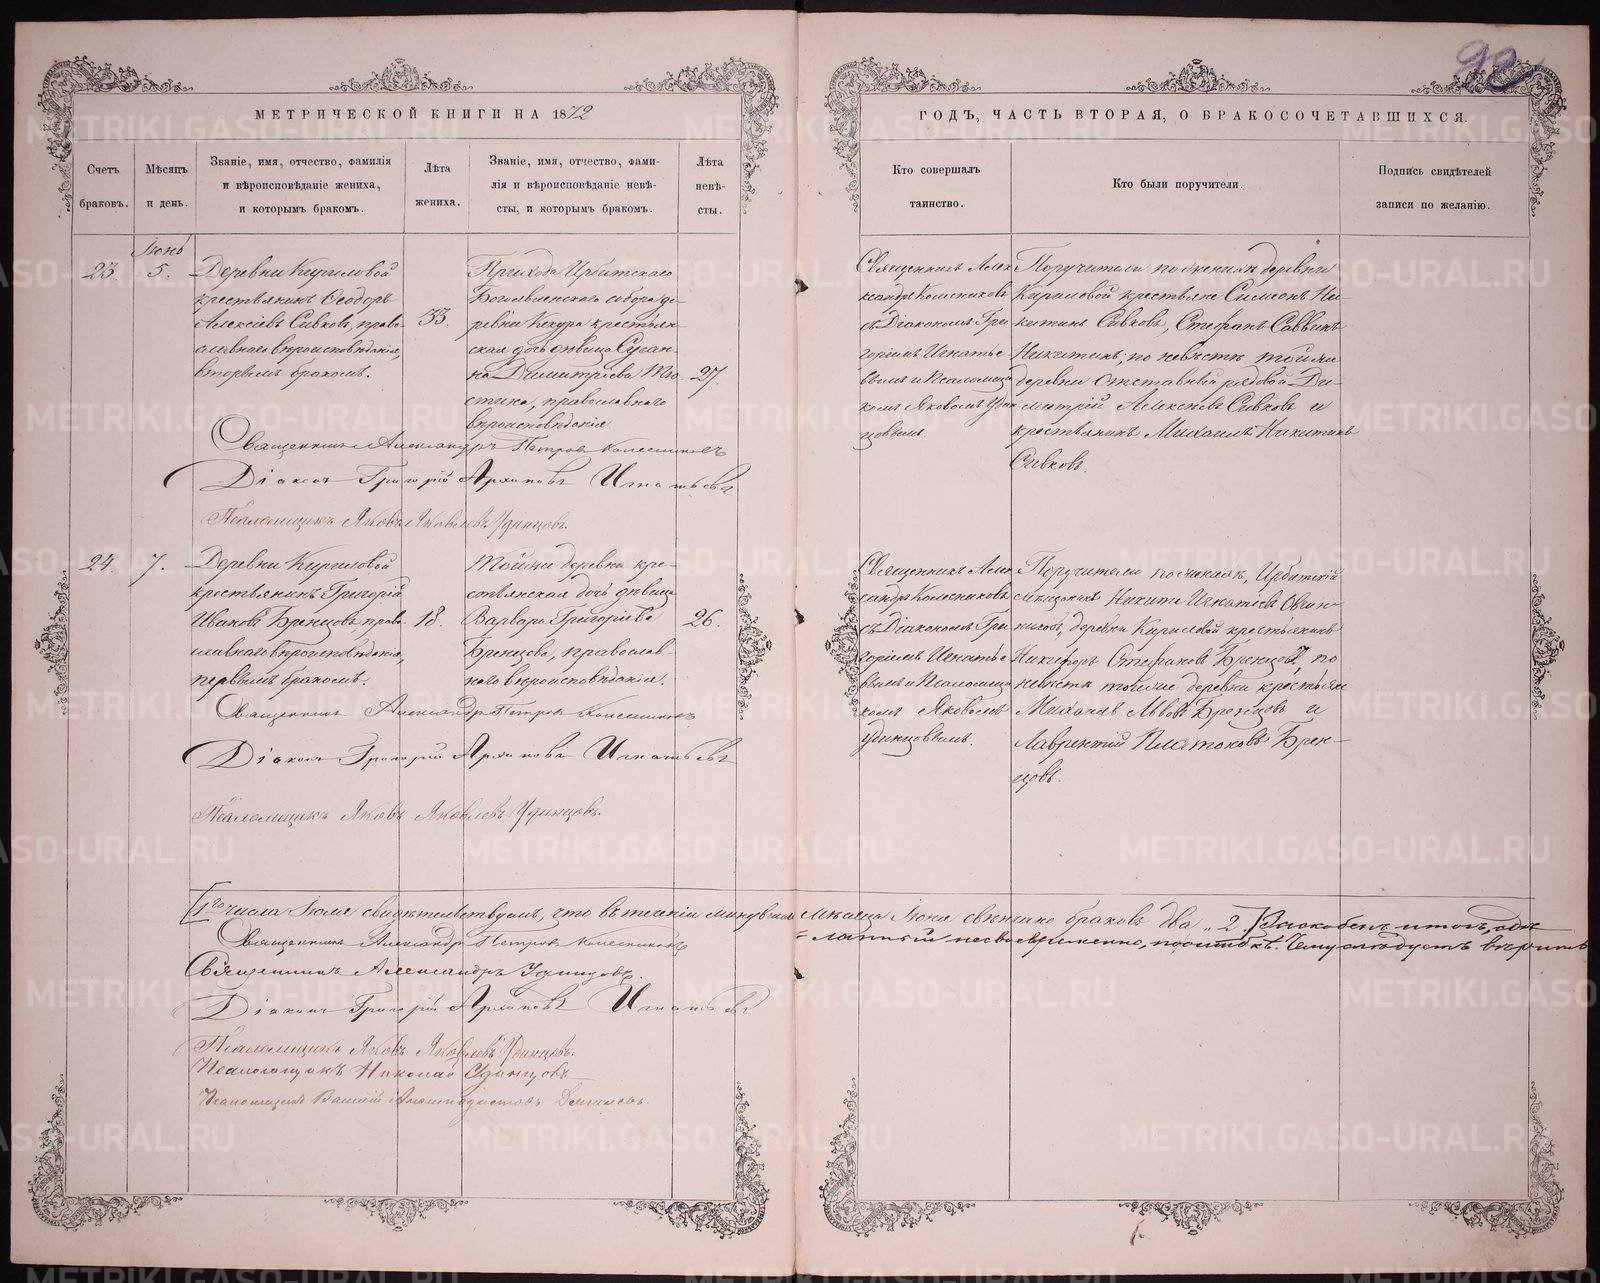 92
МЕТРИЧЕСКОЙ КНИГИ НА 1872
ГОДЪ, ЧАСТЬ ВТОРАЯ, О БРАКОСОЧЕТАВШИХСЯ.
Счетъ браковъ.
Мѣсяцъ и день.
Званіе, имя, отчество, фамилія
и вѣроисповѣданіе жениха,
и которымъ бракомъ.
Лѣта
жениха.
Званіе, имя, отчество, фами-
лія и вѣроисповѣданіе невѣ-
сты, и которымъ бракомъ.
Лѣта
невѣ-
сты.
Кто совершалъ
таинство.
Кто были поручители.
Подпись свидѣтелей
записи по желанію.
23
Іюнь
5.
Деревни Кириловой
крестьянинъ Ѳеодоръ
Алексіевъ Сивковъ, право-
славнаго вѣроисповѣданія,
вторымъ бракомъ.
33.
Прихода Ирбитскаго
Богоявленскаго собора де-
ревни Кекура крестьян-
ская дочь дѣвица Сусан-
на Димитріева
православнаго
вѣроисповѣданія
27.
Священникъ Алек
сандръ Колесниковъ
съ Діакономъ Гри
горіемъ Игнатье-
вымъ и Псаломщи
комъ Яковомъ Удин
цовымъ.
Поручители по женихѣ деревни
Кириловой крестьяне Симеонъ Ни-
китинъ Сивковъ, Стефанъ Саввинъ
Никитинъ; по невѣстѣ тойже
деревни отставный рядовой Ди-
митрій Алексѣевъ Сивковъ и
крестьянинъ Михаилъ Никитинъ
Сивковъ.
Священникъ Александръ Петровъ Колесниковъ
Діаконъ Григорій Архиповъ Игнатьевъ
Псаломщикъ Яковъ Яковлевъ Удинцовъ.
24.
7.
Деревни Кириловой
крестьянинъ Григорій
Ивановъ Бренцовъ право
славнаго вѣроисповѣданія,
первымъ бракомъ.
18.
Тойже деревни кре-
стьянская дочь дѣвица
Варвара Григоріева
Бренцова, православ-
наго вѣроисповѣданія.
26.
Священникъ Алек
сандръ Колесниковъ
съ Діакономъ Гри
горіемъ Игнатье
вымъ и Псаломщи
комъ Яковомъ
Удинцовымъ.
Поручители по женихѣ, Ирбитскій
мѣщанинъ Никита Игнатіевъ Овчин-
никовъ, деревни Кириловой крестьянинъ
Никифоръ Стефановъ Бренцовъ, по
невѣстѣ тойже деревни крестьяне
Михаилъ Львовъ Бренцовъ и
Лаврентій Платоновъ Брен-
цовъ.
Священникъ Александръ Петровъ Колесниковъ
Діаконъ Григорій Архиповъ Игнатьевъ
Псаломщикъ Яковъ Яковлевъ Удинцовъ.
[1го числа Іюля свидѣтельствуемъ, что въ теченіи минувшаго мѣсяца Іюня свѣнчано браковъ два „2.]
несвоевременно, Чему слѣдуетъ вѣрить
Священникъ Александръ Петровъ Колесниковъ
Священникъ Александръ Удинцовъ.
Діаконъ Григорій Архиповъ Игнатьевъ
Псаломщикъ Яковъ Яковлевъ Удинцовъ.
Псаломщикъ Николай Удинцовъ
Псаломщикъ Василій
METRIKI.GASO-URAL.RU